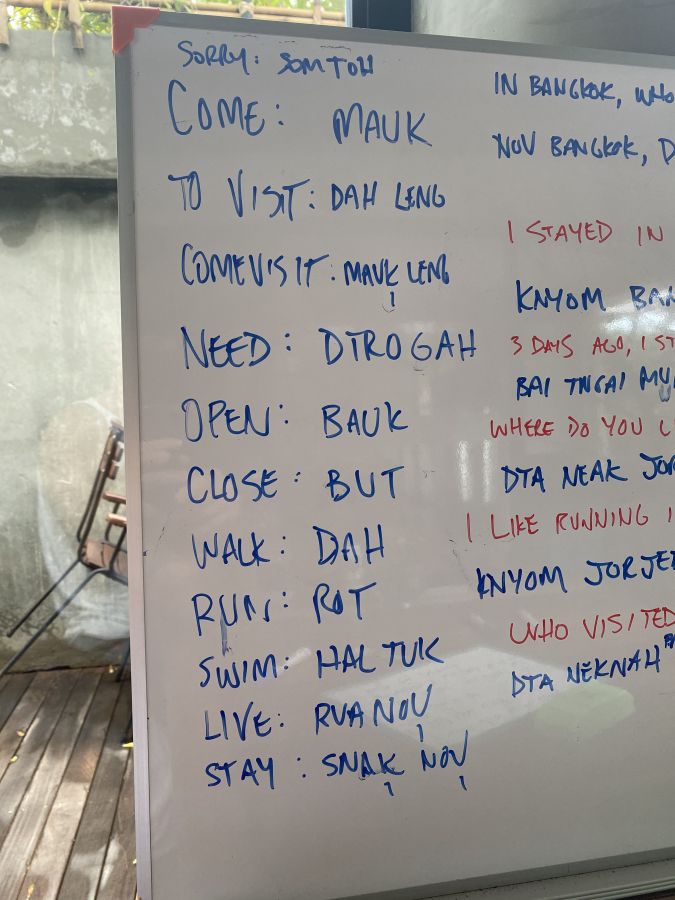 SORRY: SOMTOH
COME: MAUK
TO VISIT: DAH LENG
COME VISIT: MAUK LENG
NEED: DTROGAH
OPEN: BAUK
CLOSE: BUT
WALK: DAH
RUN: ROT
SWIM: HAL TUK
LIVE: RUA NOU
STAY: SNAK NOU
IN BANGKOK, WHO
NOV BANGKOK, D
I STAYED IN
KNYOM BAN
3 DAYS AGO, I ST
BAI TNGAI MU
WHERE DO YOU L
DTA NEAK JOR
I LIKE RUNNING I
KNYOM JORJE
WHO VISITED
DTA NEKNAH